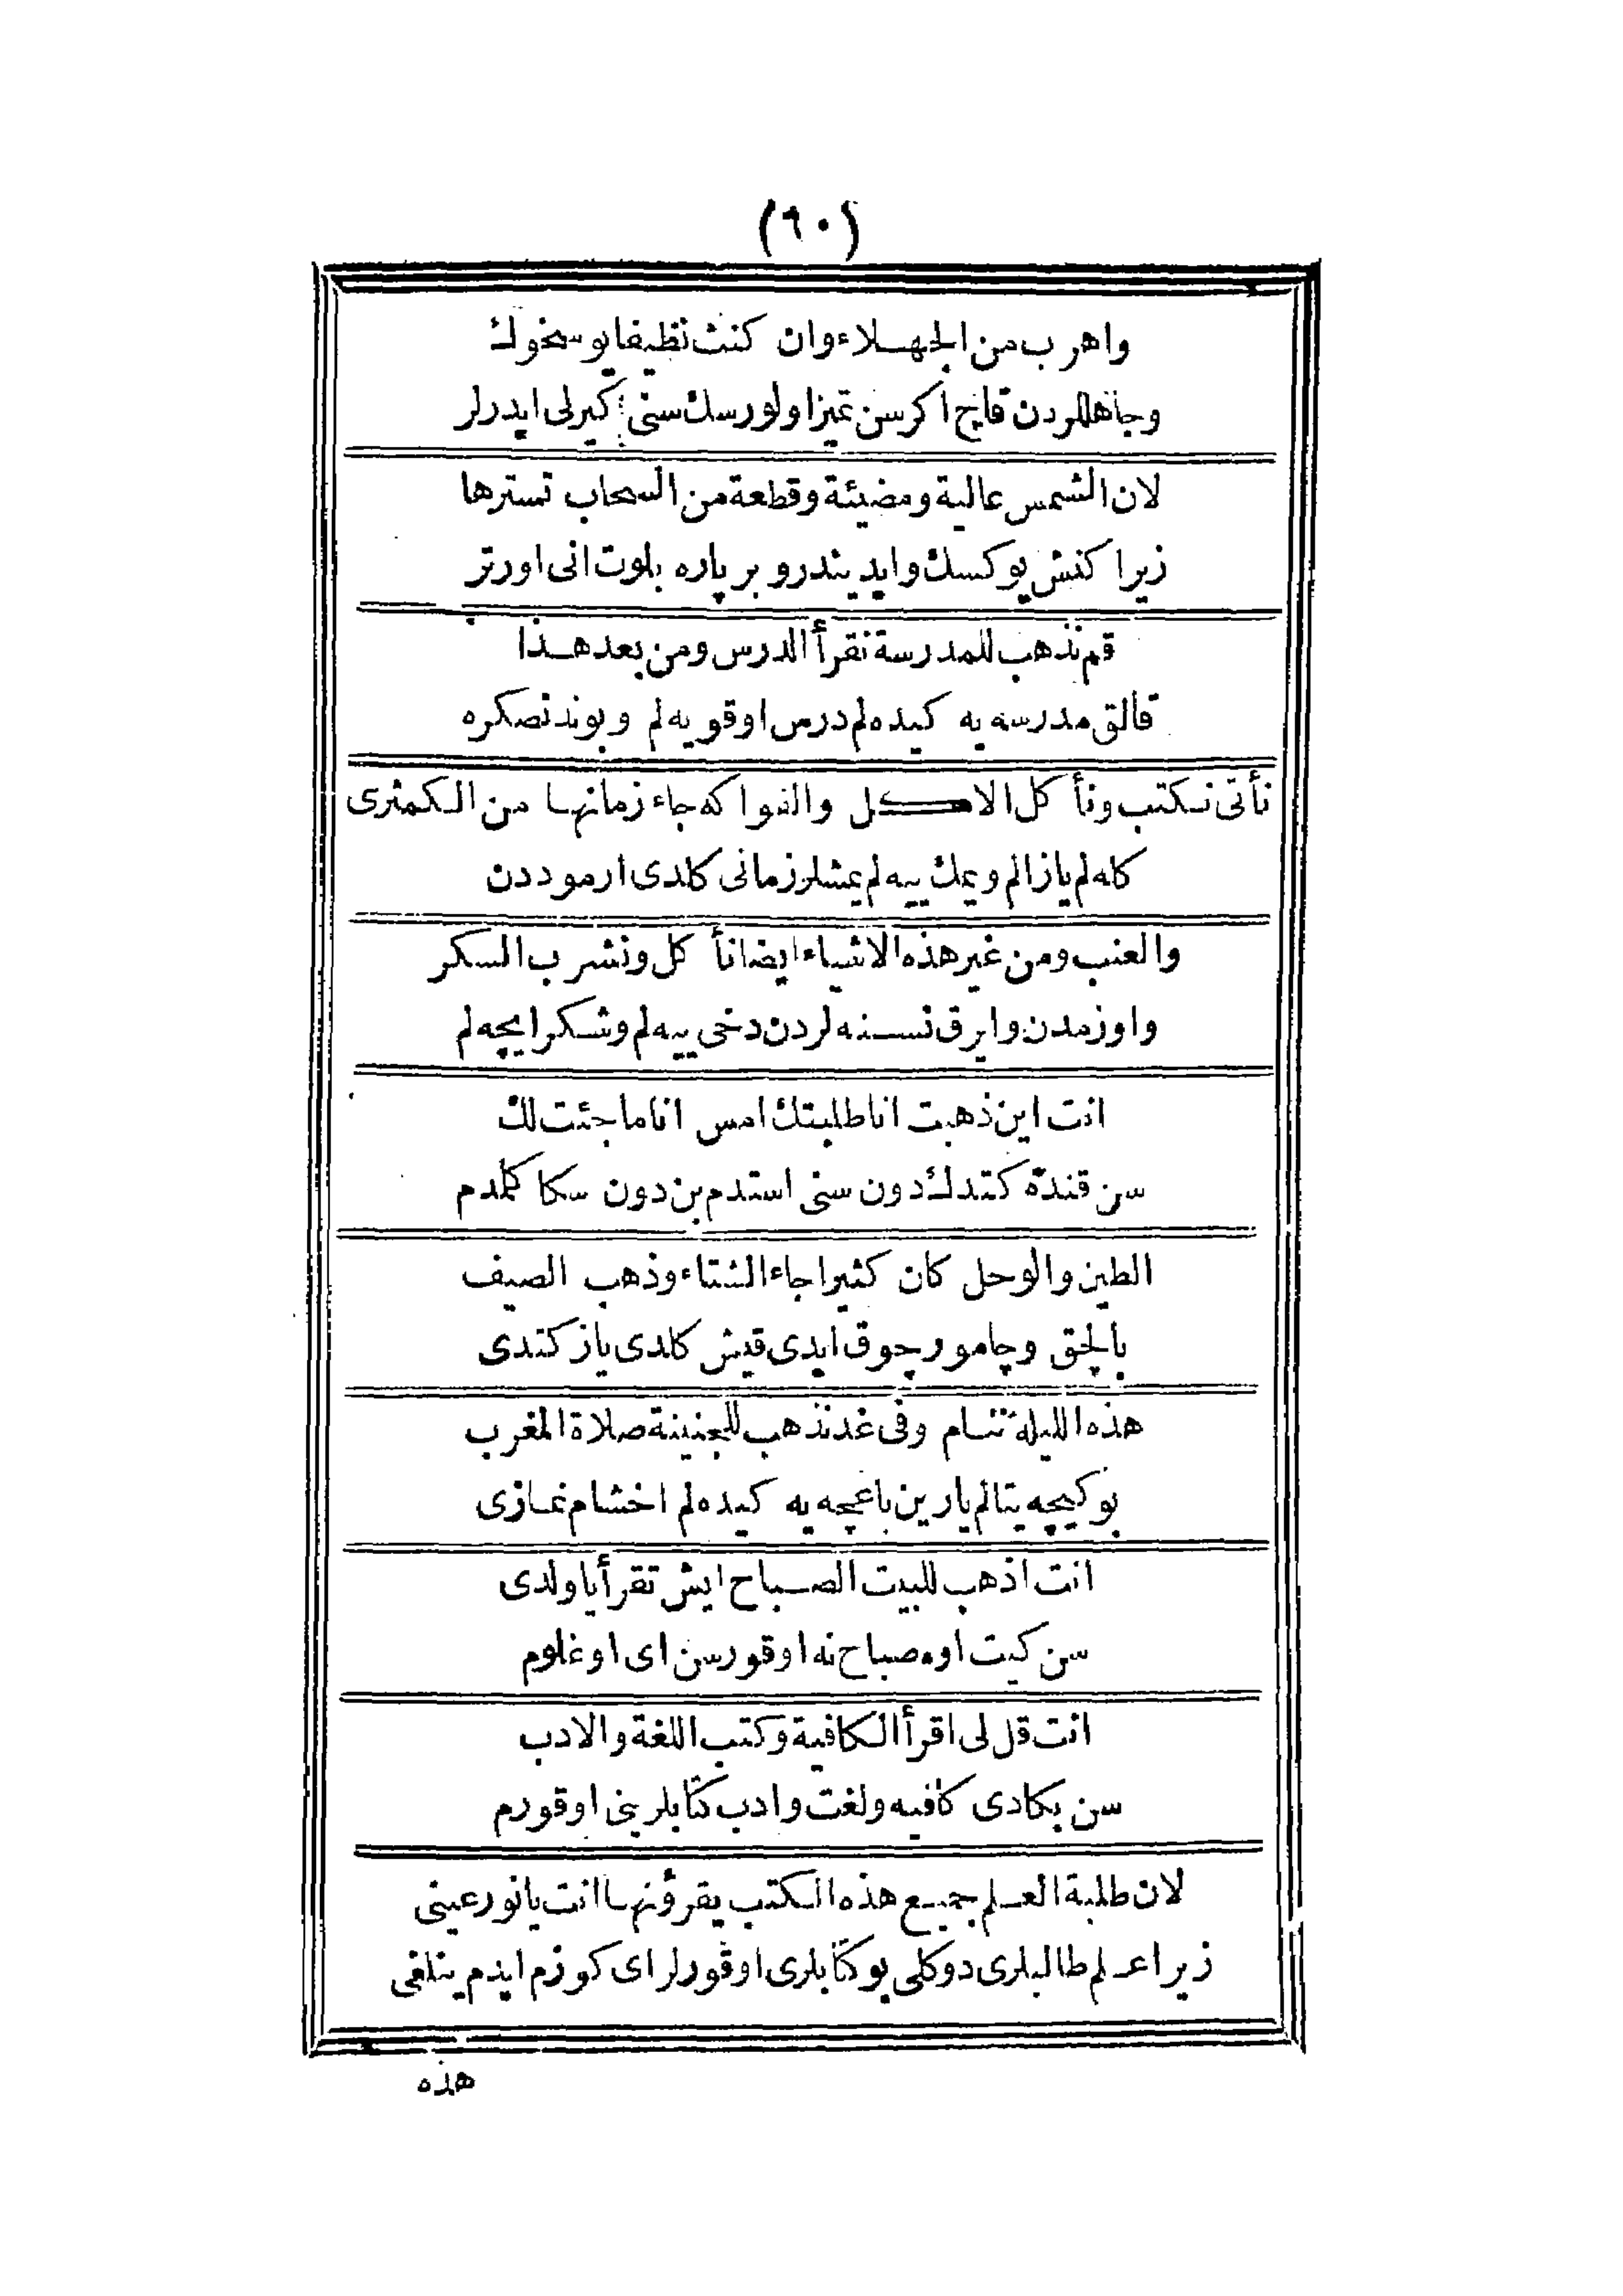 (٦٠)
واهرب من الجهلاء وان كنت نظيفا يوسخوك
وجاهللردن قاچ اكر سن تميز اولورسك سنى كيرلى ايدرلر
لان الشمس عالية ومضيئة وقطعة من السحاب تسترها
زيرا كنش يوكسك وايديندر و بر پاره بلوت انى اورتر
قم نذهب للمدرسة نقرأ الدرس ومن بعد هذا
قالق مدرسه يه كيده لم درس اوقويه لم وبوندنصكره
نأتى نكتب ونأكل الاكل والفواكه جاء زمانها من الكمثرى
كله لم يازالم ويمك ييه لم يمشلر زمانى كلدى ارموددن
والعنب ومن غير هذه الاشياء ايضا نأكل ونشرب السكر
واوزمدن وايرق نسنه لردن دخى ييه لم وشكر ايچه لم
انت اين ذهبت انا طلبتك امس انا ما جئت لك
سن قنده كتدك دون سنى استدم بن دون سكا كلمدم
الطين والوحل كان كثيرا جاء الشتاء وذهب الصيف
بالچق وچامور چوق ايدى قيش كلدى ياز كتدى
هذه الليلة ننام وفى غد نذهب للجنينة صلاة المغرب
بو كيجه يتالم يارين باغچه يه كيده لم اخشام نمازى
انت اذهب للبيت الصباح ايش تقرأ يا ولدى
سن كيت اوه صباح نه اوقورسن اى اوغلوم
انت قل لى اقرأ الكافية وكتب اللغة والادب
سن بكا دى كافيه ولغت وادب كتابلرينى اوقورم
لان طلبة العلم جميع هذه الكتب يقرؤنها انت يا نور عينى
زيرا علم طالبلرى دوكلى بو كتابلرى اوقورلر اى كوزم ايدم
هذه